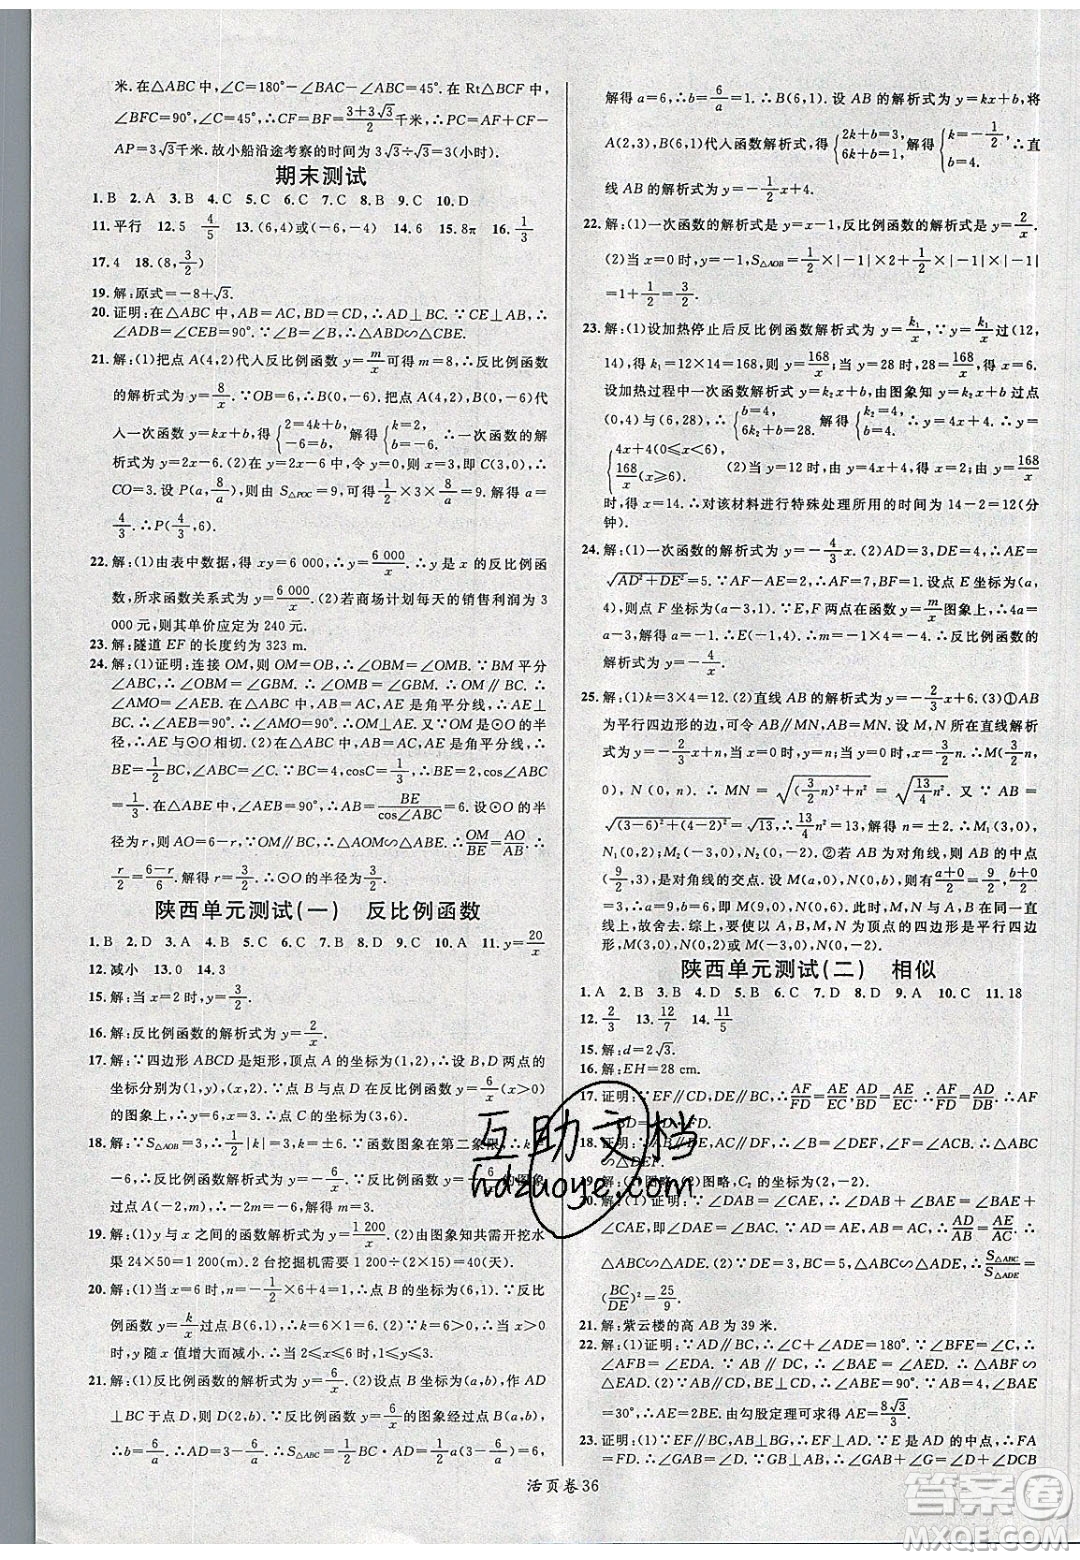 米.在△ABC中,∠C=180°-∠BAC-∠ABC=45°.在Rt△BCF中,
∠BFC=90°,∠C=45°,∴CF=BF=(3+3√3)/2千米,∴PC=AF+CF-
AP=3√3千米.故小船沿途考察的时间为3√3÷√3=3(小时).
期末测试
1.B 2.A 3.B 4.C 5.C 6.C 7.D 8.C 9.C 10.D
11.平行 12.5 4/5 13.(6,4)或(-6,-4) 14.6 15.8π 16.1/3
17.4 18.(8,3/2)
19.解:原式=-8+√3.
20.证明:在△ABC中,AB=AC,BD=CD,∴AD⊥BC.∵CE⊥AB,∴
∠ADB=∠CEB=90°.∵∠B=∠B,∴△ABD∽△CBE.
21.解:(1)把点A(4,2)代入反比例函数y=m/x可得m=8,∴反比例函数
的解析式为y=8/x.∵OB=6,∴B(0,-6).把点A(4,2),B(0,-6)代
入一次函数y=kx+b,得{2=4k+b,-6=b.解得{k=2,b=-6.∴一次函数的解
析式为y=2x-6.(2)在y=2x-6中,令y=0,则x=3,即C(3,0),∴
CO=3.设P(a,8/a),则由S△POC=9,可得1/2×3×8/a=9.解得a=
4/3.∴P(4/3,6).
22.解:(1)由表中数据,得xy=6 000,∴y=6 000/x,∴y是x的反比例函
数,所求函数关系式为y=6 000/x.(2)若商场计划每天的销售利润为3
000元,则其单价应定为240元.
23.解:隧道EF的长度约为323 m.
24.解:(1)证明:连接OM,则OM=OB,∴∠OBM=∠OMB.∵BM平分
∠ABC,∴∠OBM=∠GBM.∴∠OMB=∠GBM,∴OM∥BC,∴
∠AMO=∠AEB.在△ABC中,∵AB=AC,AE是角平分线,∴AE⊥
BC,∴∠AEB=90°,∴∠AMO=90°,∴OM⊥AE.又∵OM是⊙O的半
径,∴AE与⊙O相切.(2)在△ABC中,AB=AC,AE是角平分线,∴
BE=1/2BC,∠ABC=∠C.∵BC=4,cosC=1/3,∴BE=2,cos∠ABC=
1/3.在△ABE中,∠AEB=90°,∴AB=BE/cos∠ABC=6.设⊙O的半
径为r,则AO=6-r,∵OM∥BC,∴△AOM∽△ABE,∴OM/BE=AO/AB.∴
r/2=(6-r)/6.解得r=3/2,∴⊙O的半径为3/2.
陕西单元测试(一) 反比例函数
1.B 2.D 3.A 4.C 5.A 6.B 7.D 8.D 9.C 10.A 11.y=20/x
12.减小 13.0 14.3
15.解:当x=2时,y=√3/2.
16.解:反比例函数的解析式为y=2/x.
17.解:∵四边形ABCD是矩形,顶点A的坐标为(1,2),∴设B,D两点的
坐标分别为(1,y),(x,2).∵点B与点D在反比例函数y=6/x(x>0)
的图象上,∴y=6,x=3,∴B,D两点的坐标分别为(1,6),(3,6).
18.解:∵S△AOB=3,∴1/2|k|=3,∴k=±6.∵函数图象在第二象限,∴k=
-6,∴反比例函数的解析式为y=-6/x.∵反比例函数y=-6/x的图象
过点A(-2,m),∴-2m=-6.解得m=3.
19.解:(1)y与x之间的函数解析式为y=1 200/x.(2)由图象知共需开挖水
渠24×50=1 200(m).2台挖掘机需要1 200÷(2×15)=40(天).
20.解:(1)当x=6时,n=-1/2×6+4=1,∴点B的坐标为(6,1).∵反比
例函数y=k/x过点B(6,1),∴k=6×1=6.(2)∵k=6>0,∴当x>0时,
y随x值增大而减小,∴当2≤x≤6时,1≤y≤3.
21.解:(1)反比例函数的解析式为y=6/x.(2)设点B坐标为(a,b),作AD
⊥BC于点D,则D(2,b).∵反比例函数y=6/x的图象经过点B(a,b),
∴b=6/a.∴AD=3-6/a.∴S△ABC=1/2BC·AD=1/2a(3-6/a)=6,
解得a=6,∴b=6/a=1.∴B(6,1).设AB的解析式为y=kx+b,将
A(2,3),B(6,1)代入函数解析式,得{2k+b=3,6k+b=1.解得{k=-1/2,b=4.∴直
线AB的解析式为y=-1/2x+4.
22.解:(1)一次函数的解析式是y=x-1,反比例函数的解析式为y=2/x.
(2)当x=0时,y=-1,S△AOB=1/2×|-1|×2+1/2×|-1|×|-1|
=1+1/2=3/2.
23.解:(1)设加热停止后反比例函数解析式为y=k₁/x,∵y=k₁/x过(12,
14),得k₁=12×14=168,则y=168/x;当y=28时,28=168/x,得x=6.
设加热过程中一次函数解析式y=k₂x+b,由图象知y=k₂x+b过点
(0,4)与(6,28),∴{b=4,6k₂+b=28.∴{k₂=4,b=4.∴y=
{4+4x(0≤x<6)168/x(x≥6).(2)当y=12时,y=4x+4,得x=2.由y=168/x
时,得x=14.∴对该材料进行特殊处理所用的时间为14-2=12(分
钟).
24.解:(1)一次函数的解析式为y=-4/3x.(2)AD=3,DE=4,∴AE=
√(AD²+DE²)=5.∵AF-AE=2,∴AF=7,BF=1.设点E坐标为(a,
4),则点F坐标为(a-3,1),∵E,F两点在函数y=m/x图象上,∴4a=
a-3,解得a=-1,∴E(-1,4),∴m=-1×4=-4,∴反比例函数的
解析式为y=-4/x.
25.解:(1)k=3×4=12.(2)直线AB的解析式为y=-2/3x+6.(3)①AB
为平行四边形的边,可令AB∥MN,AB=MN.设M,N所在直线解析
式为y=-2/3x+n.当x=0时,y=n;当y=0时,x=3/2n.∴M(3/2n,
0),N(0,n).∴MN=√((3/2n)²+n²)=√(13/4n²).又∵AB=
√((3-6)²+(4-2)²)=√13,∴13/4n²=13.解得n=±2.∴M₁(3,0),
N₁(0,2);M₂(-3,0),N₂(0,-2).②若AB为对角线,则AB的中点
(9/2,3)为对角线的交点.设M(a,0),N(0,b),则(a+0)/2=9/2,(b+0)/2
=3.∴a=9,b=6,即M(9,0),N(0,6).此时A,B,M,N在同一直
线上,故舍去.综上,以A,B,M,N为顶点的四边形是平行四边
形,M(3,0),N(0,2)或M(-3,0),N(0,-2).
陕西单元测试(二) 相似
1.A 2.B 3.B 4.A 5.D 6.B 7.A 8.D 9.A 10.C 11.18
12.2/3 13.12/7 14.11/5
15.解:d=2√3.
16.解:EH=28 cm.
17.证明:∵EF∥CD,DE∥BC,∴AF/FD=AE/EC,AD/DB=AE/EC,∴AF/FD=AD/DB.
18.证明:∵AB∥DE,AC∥DF,∴∠B=∠DEF,∠F=∠ACB,∴△ABC
∽△DEF.
19.解:(1)图略.(2)图略,C₂的坐标为(-6,4).
20.解:(1)证明:∵∠BAD=∠CAE,∴∠BAD+∠BAE=∠BAE+
∠CAE,即∠DAE=∠BAC.∵AD·AC=AB·AE,∴AD/AB=AE/AC.∴
△ABC∽△ADE.(2)∵BC=5,DE=3,△ABC∽△ADE,∴S△ABC/S△ADE=
(BC/DE)²=25/9.
21.解:紫云楼的高AB为39米.
22.解:(1)证明:∵AB∥CD,AD∥BC,∴∠C+∠ADE=180°.∵∠BFE=∠C,
∴∠AFB=∠EDA.∵AB∥DC,∴∠BAE=∠AED,∴△ABF∽
△EAD.(2)∵AB∥CD,BE⊥CD,∴∠ABE=90°.∵AB=4,∠BAE
=30°,∴AE=2BE.由勾股定理可求得AE=8√3/3.
23.证明:(1)∵EF∥BC,AB⊥BC,∴EF⊥AD.∵E是AD的中点,∴FA
=FD,∴∠FAD=∠D.∵GB⊥AB,∴∠GAB+∠G=∠D+∠DCB
活页卷36
互助文档
hdzuoye.com
答案圈
MXQE.COM